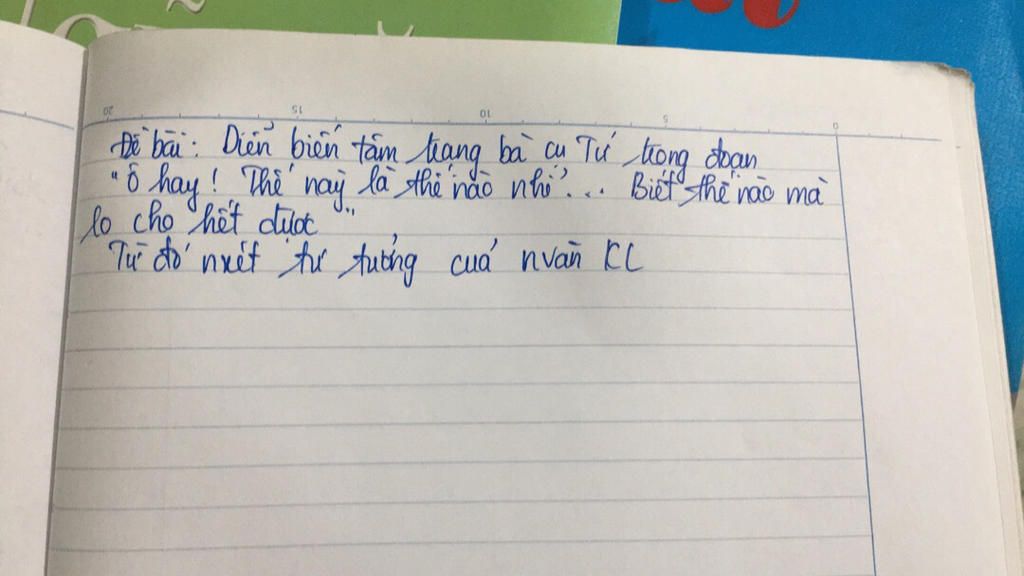 20 15 10 5 0
Đề bài: Diển biến tâm trạng bà cụ Tứ trong đoạn
"Ô hay! Thế này là thế nào nhỉ?... Biết thế nào mà
lo cho hết được"
Từ đó nxét tư tưởng của nvăn KL